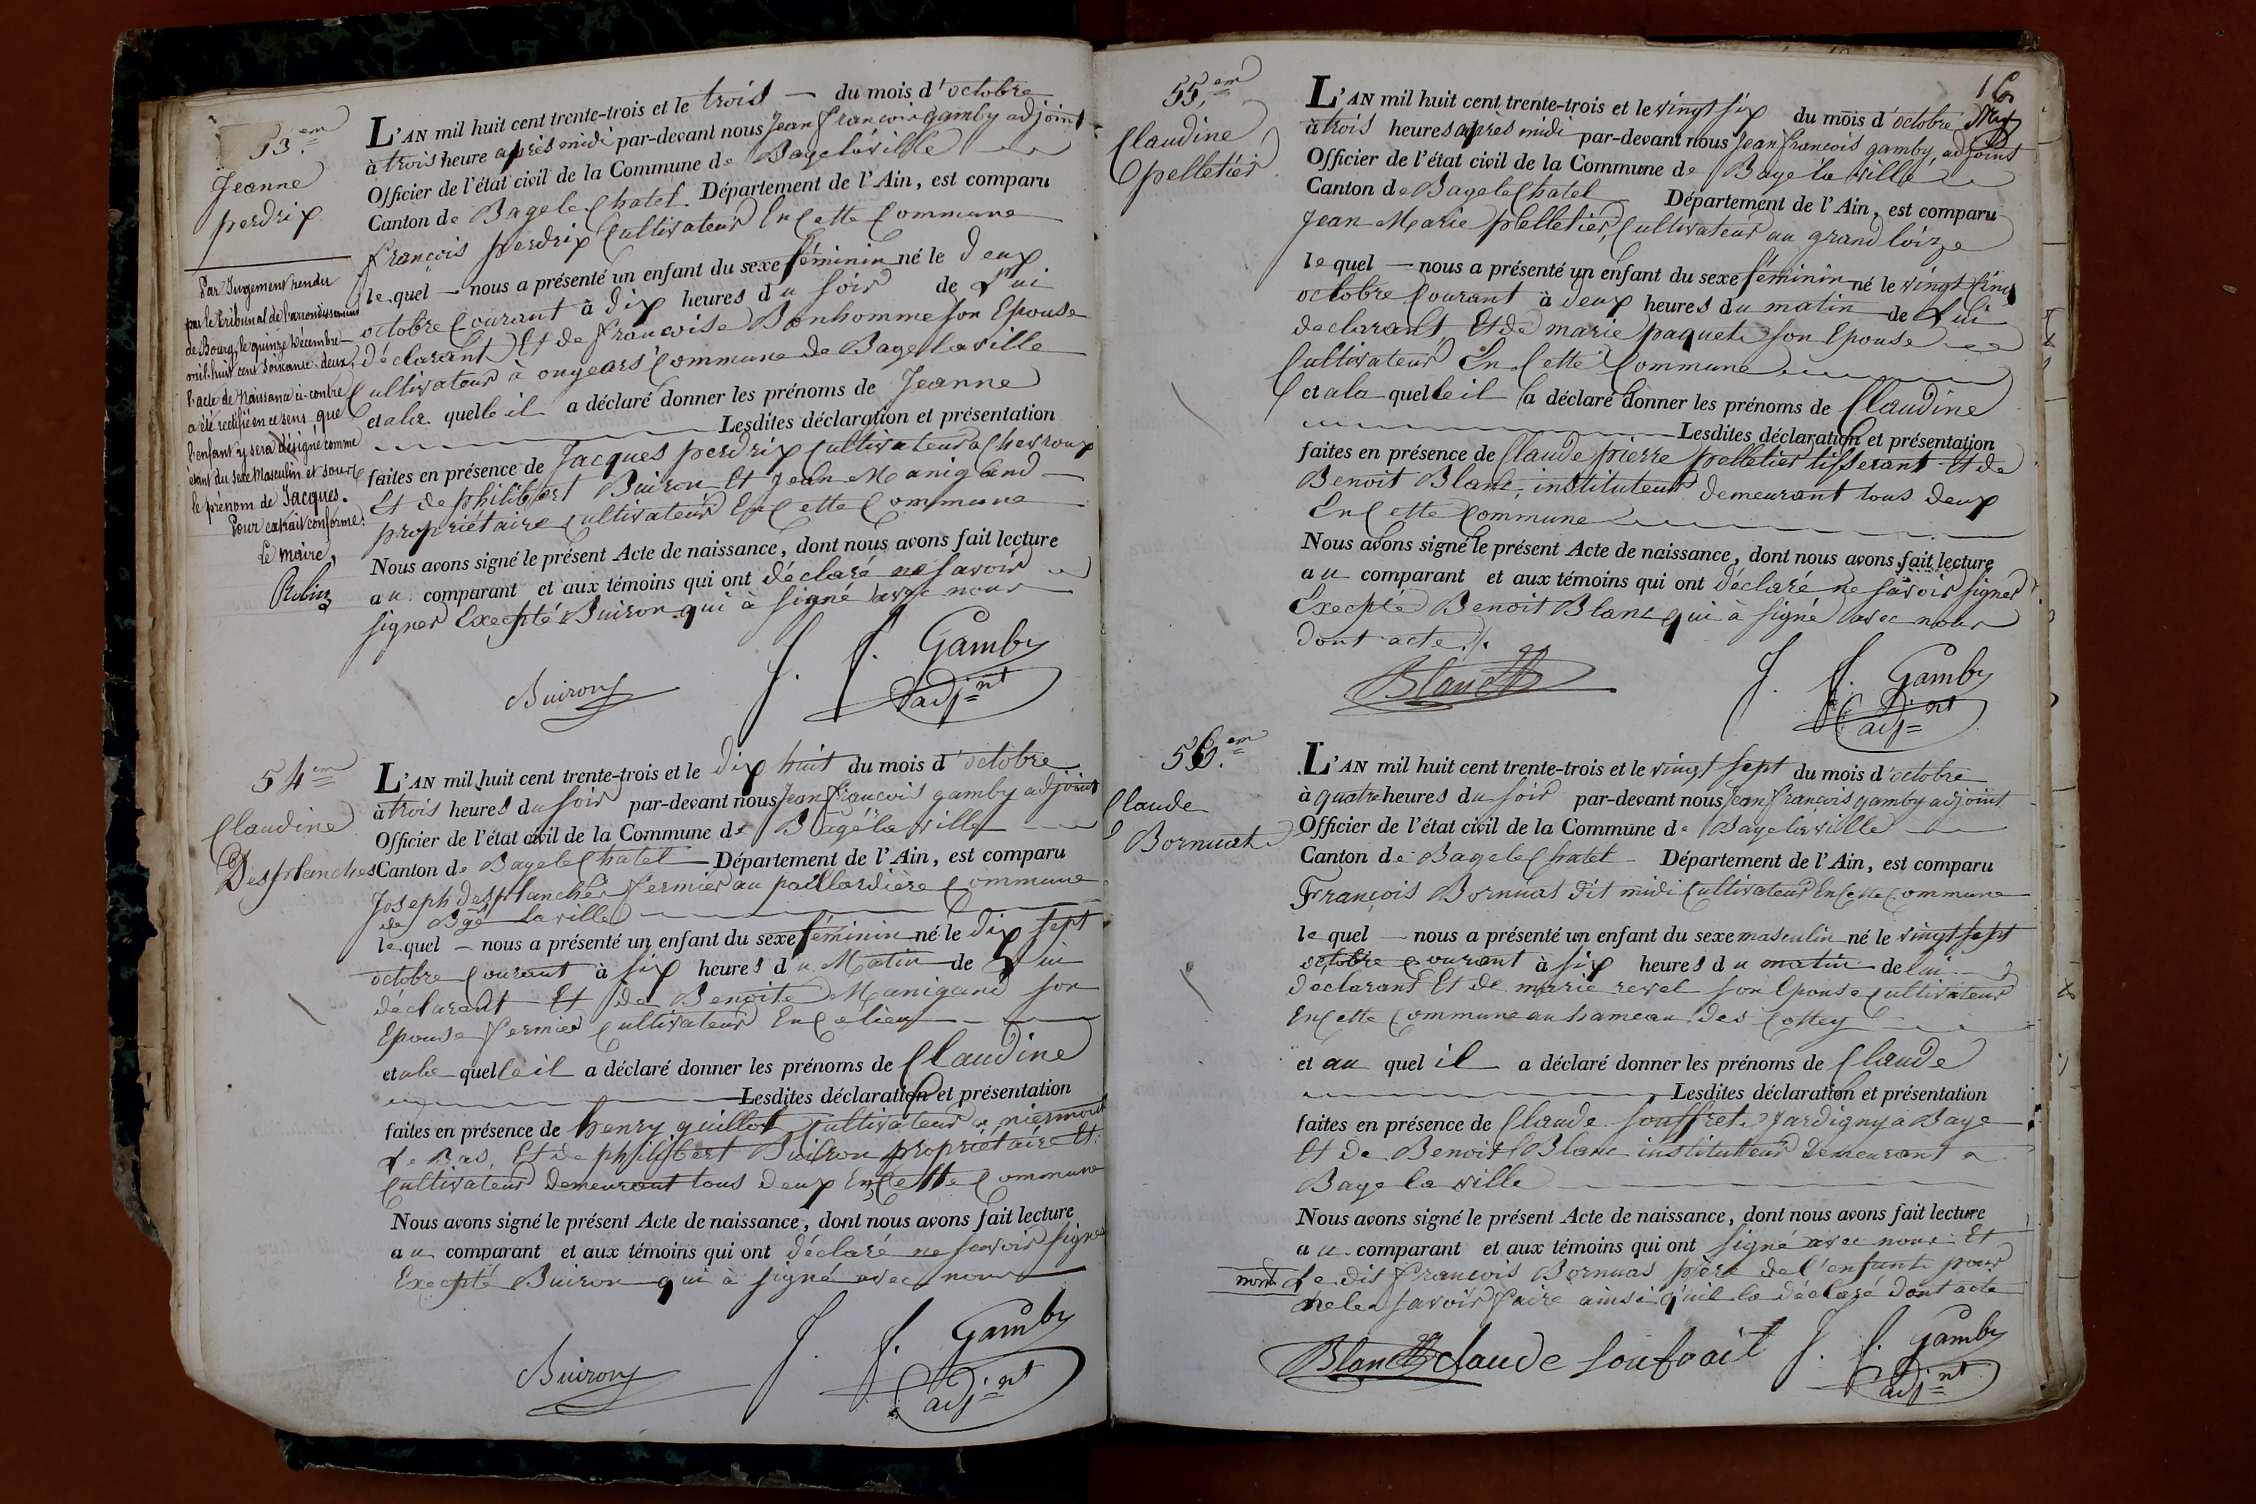 53.em
Jeanne
perdrix
Par Jugement rendu
par le tribunal de l'arrondissement
de Bourg, le quinze Décembre
mil huit cent soixante-deux,
l'acte de Naissance ci-contre
a été rectifié en ce sens, que
l'enfant y sera désigné comme
étant du sexe Masculin et sous
le prénom de Jacques.
Pour extrait conforme.
Le maire,
Robin
L'AN mil huit cent trente-trois et le trois du mois d'octobre
à trois heure après midi par-devant nous Jean françois gamby adjoint
Officier de l'état civil de la Commune de Bagé la ville
Canton de Bage le Chatel Département de l'Ain, est comparu
françois perdrix Cultivateur En Cette Commune
le quel nous a présenté un enfant du sexe féminin né le deux
octobre Courant à dix heures du soir de Lui
déclarant Et de francoise Bonhomme son Epouse
Cultivateur à ongears Commune de Bage la ville
et a la quelle il a déclaré donner les prénoms de Jeanne
Lesdites déclaration et présentation
faites en présence de Jacques perdrix Cultivateur a Chevroux
Et de philibert Buiron Et Jean Manigand
propriétaire Cultivateur En Cette Commune
Nous avons signé le présent Acte de naissance, dont nous avons fait lecture
au comparant et aux témoins qui ont déclaré ne savoir
signer Excepté Buiron qui à signé avec nous
Buiron
J. f. Gamby
adjnt
54em
Claudine
Desplanches
L'AN mil huit cent trente-trois et le dix huit du mois d'octobre
à trois heures du soir par-devant nous Jean françois gamby adjoint
Officier de l'état civil de la Commune de Bagé la ville
Canton de Bage le Chatel Département de l'Ain, est comparu
Joseph desplanches fermier au paillardière Commune
de Bgé la ville
le quel nous a présenté un enfant du sexe féminin né le dix sept
octobre Courant à six heures du Matin de Lui
déclarant Et de Benoite Manigand son
Epouse fermier Cultivateur En Ce lieu
et a la quelle il a déclaré donner les prénoms de Claudine
Lesdites déclaration et présentation
faites en présence de henry guillot Cultivateur a niermont
Le Bas, Et de philibert Buiron propriétaire Et
Cultivateur demeurant tous deux En Cette Commune
Nous avons signé le présent Acte de naissance, dont nous avons fait lecture
au comparant et aux témoins qui ont déclaré ne savoir signer
Excepté Buiron qui à signé avec nous
Buiron
J. f. Gamby
adjnt
16
55.em
Claudine
pelletier
L'AN mil huit cent trente-trois et le vingt six du mois d'octobre
à trois heures après midi par-devant nous Jean francois gamby, adjoint
Officier de l'état civil de la Commune de Bagé la ville
Canton de Bage le Chatel Département de l'Ain, est comparu
Jean Marie pelletier, Cultivateur au grand loize
le quel nous a présenté un enfant du sexe féminin né le vingt Cinq
octobre Courant à deux heures du matin de Lui
declarant, Et de marie paquet son Epouse
Cultivateur En Cette Commune
et a la quelle il a déclaré donner les prénoms de Claudine
Lesdites déclaration et présentation
faites en présence de Claude pierre pelletier tisserant Et de
Benoit Blanc, instituteur demeurant tous deux
En Cette Commune
Nous avons signé le présent Acte de naissance, dont nous avons fait lecture
au comparant et aux témoins qui ont déclaré ne savoir signer
Excepté Benoit Blanc qui à signé avec nous
dont acte ./.
Blanc
J. f. Gamby
adjnt
56.em
Claude
Bornuat
L'AN mil huit cent trente-trois et le vingt sept du mois d'octobre
à quatre heures du soir par-devant nous Jean francois gamby adjoint
Officier de l'état civil de la Commune de Bage la ville
Canton de Bage le Chatel Département de l'Ain, est comparu
François Bornuat dit midi Cultivateur En Cette Commune
le quel nous a présenté un enfant du sexe masculin né le vingt sept
octobre Courant à six heures du matin de lui
declarant Et de marie revel son Epouse Cultivateur
En Cette Commune au hameau des Cottey
et au quel il a déclaré donner les prénoms de Claude
Lesdites déclaration et présentation
faites en présence de Claude Souffret Jardigny a Bage
Et de Benoit Blanc instituteur demeurant a
Bage la ville
Nous avons signé le présent Acte de naissance, dont nous avons fait lecture
au comparant et aux témoins qui ont signé avec nous Et
non Le dit François Bornuas père de l'enfant pour
ne le savoir faire ainsi qu'il la déclaré dont acte
Blanc claude soufrait J. f. gamby
adjnt